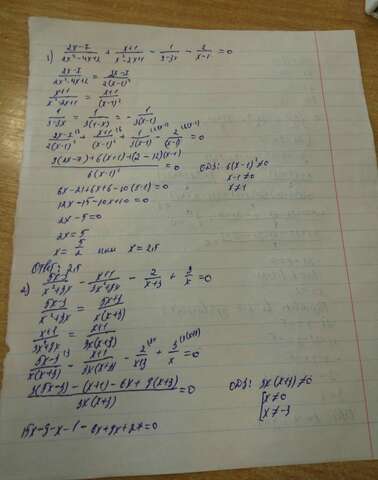 1) (2x-7)/(2x²-4x+2) + (x+1)/(x²-2x+1) - 1/(3-3x) - 2/(x-1) = 0
(2x-7)/(2x²-4x+2) = (2x-7)/(2(x-1)²)
(x+1)/(x²-2x+1) = (x+1)/(x-1)²
1/(3-3x) = 1/(3(1-x)) = -1/(3(x-1))
(2x-7)/(2(x-1)²) + (x+1)/(x-1)² + 1/(3(x-1)) - 2/(x-1) = 0
(3(2x-7)+6(x+1)+(2-12)(x-1))/(6(x-1)²) = 0 ОДЗ: 6(x-1)²≠0
x-1≠0
6x-21+6x+6-10(x-1)=0 x≠1
12x-15-10x+10=0
2x-5=0
2x=5
x = 5/2 или x=2,5
Ответ: 2,5
2) (5x-3)/(x²+3x) - (x+1)/(3x²+9x) - 2/(x+3) + 3/x = 0
(x+1)/(3x²+9x) = (x+1)/(3x(x+3))
(5x-3)/(x(x+3)) - (x+1)/(3x(x+3)) - 2/(x+3) + 3/x = 0
(3(5x-3)-(x+1)-6x+9(x+3))/(3x(x+3)) = 0 ОДЗ: 3x(x+3)≠0
x≠0
x≠-3
15x-9-x-1-6x+9x+27=0